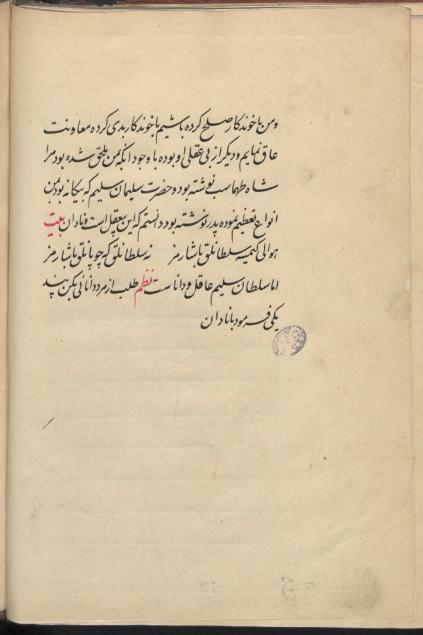 ومن با خوندکار صلح کرده باشیم با خوندکار بدی کرده معاونت
عاق نمایم و دیگر از بی عقلی او بوده با وجود آنکه بمن ملحق شده بود مرا
شاه طهماسب نوشته بود و حضرت سلیمان سلیم که بیکانه بود بمن
انواع تعظیم نموده پدر نوشته بود دانستم که این بیعقل است و نادان بیت
هوالی کیمیسه سلطانلق باشارمز نه سلطانلق که چوپانلق باشارمز
اما سلطان سلیم عاقل و داناست نظم طلب از مرد دانائی بکن پند
یکی فرمود با نادان